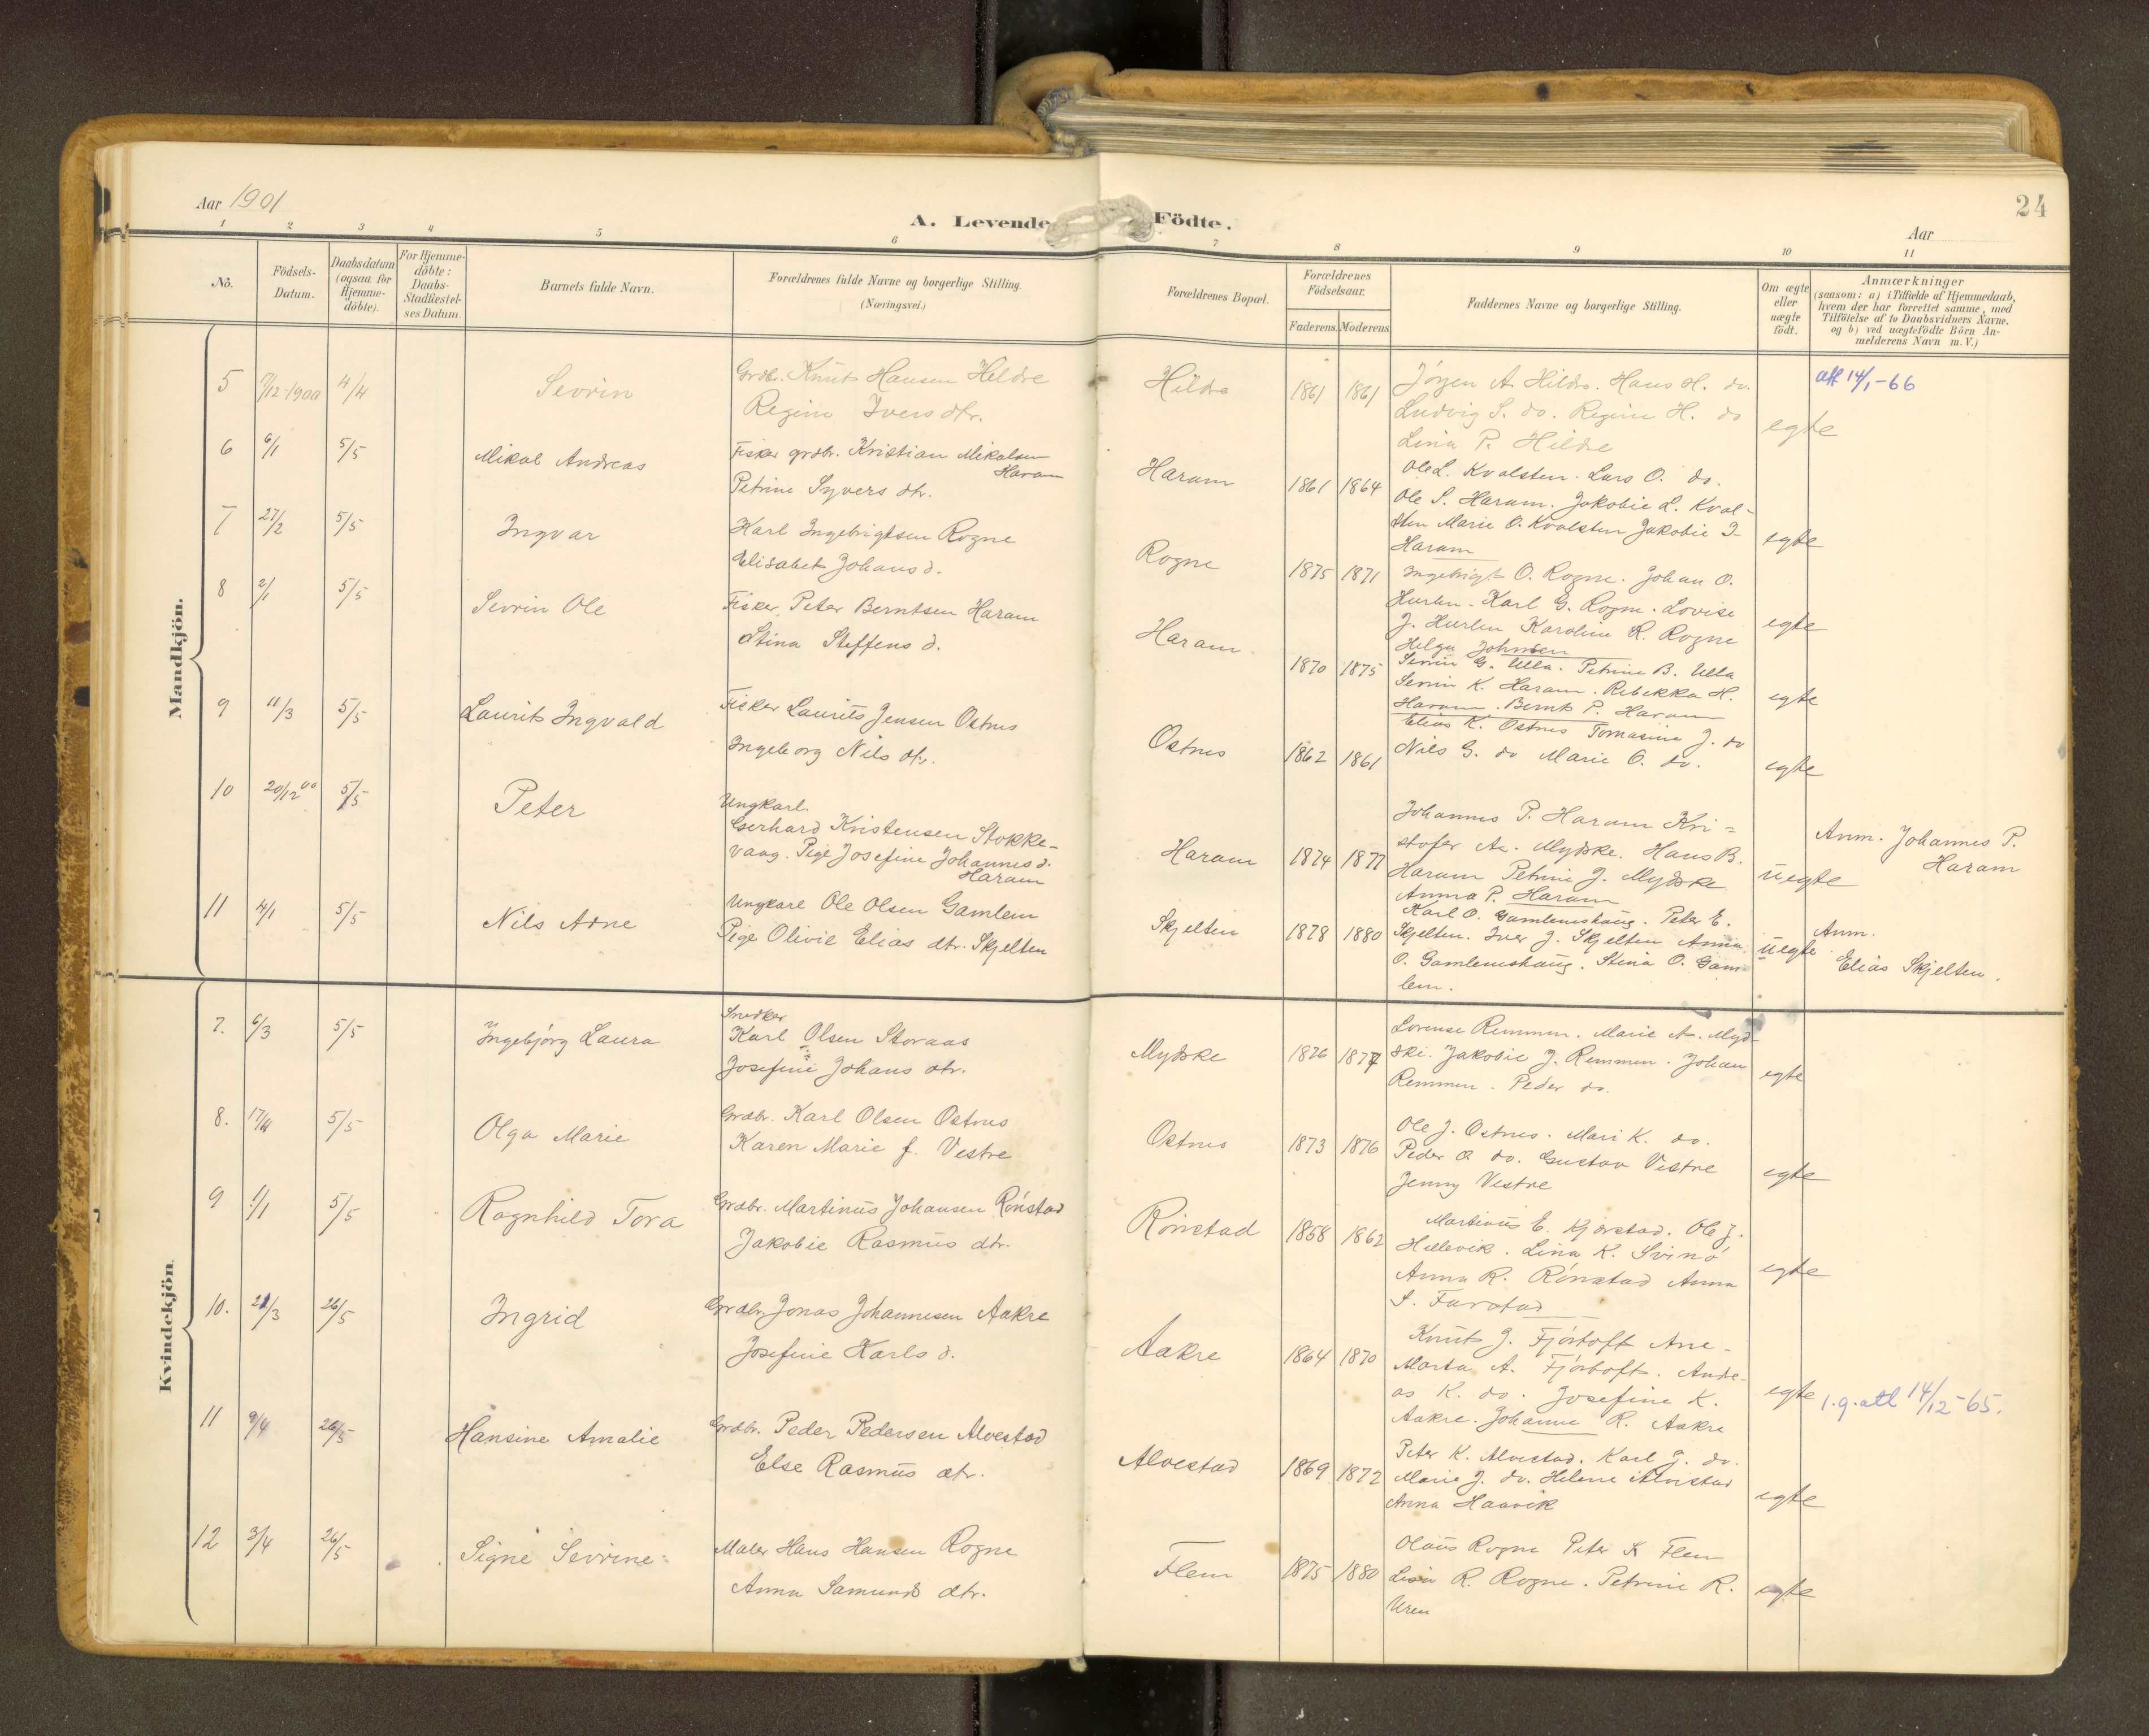 24
Aar 1901
A. Levende Födte.
Aar
1 2 3 4 5 6 7 8 9 10 11
No.
Födsels-
Datum.
Daabsdatum
(ogsaa for
Hjemme-
döbte).
For Hjemme-
döbte:
Daabs-
Stadfæstel-
ses Datum.
Barnets fulde Navn.
Forældrenes fulde Navne og borgerlige Stilling.
(Næringsvei.)
Forældrenes Bopæl.
Forældrenes
Födselsaar.
Faderens. Moderens
Faddernes Navne og borgerlige Stilling.
Om ægte
eller
uægte
födt.
Anmærkninger
(saasom: a) i Tilfælde af Hjemmedaab,
hvem der har forrettet samme, med
Tilföielse af to Daabsvidners Navne.
og b) ved uægtefödte Börn An-
melderens Navn m.V.)
Mandkjön.
5 /12-1900 4/4 Sevrin
Grdbr. Knut Hansen Heldre
Regine Ivers dtr.
Hildre 1861 1861
Jörgen A Hildre. Hans H. do.
Ludvig S. do. Regine H. do
Lina P. Hildre
egte
att 14/1-66
6 6/1 5/5 Mikal Andreas
Fisker grdbr. Kristian Mikalsen
Haram
Petrine Syvers dtr.
Haram 1861 1864
Ole L. Kvalsten. Lars O. do.
Ole S. Haram. Jakobie L. Kval-
sten Marie O. Kvalsten Jakobie I-
Haram
egte
7 27/2 5/5 Ingvar
Karl Ingebrigtsen Rogne
Elisabet Johans d.
Rogne 1875 1871
Ingebrigt O. Rogne. Johan O.
Hurlen. Karl G. Rogne. Lovise
J. Hurlen Karoline R. Rogne
Helga Johnsen
egte
8 2/1 5/5 Sevrin Ole
Fisker. Peter Berntsen Haram
Stina Steffens d.
Haram. 1870 1875
Sevrin G. Ulla. Petrine B. Ulla
Sevrin K. Haram. Rebekka H.
Haram. Bernt P. Haram
egte
9 11/3 5/5 Laurits Ingvald
Fisker Laurits Jensen Ostnes
Ingeborg Nils dtr.
Ostnes 1862 1861
Elias K. Ostnes Tomasine J. do
Nils G. do Marie O. do.
egte
10 20/12 00 5/5 Peter
Ungkarl.
Gerhard Kristensen Stokke-
vaag. Pige Josefine Johannes d.
Haram
Haram 1874 1877
Johannes P. Haram Kri=
stofer A. Mydske. Hans B.
Haram Petrine J. Mydske
Anna P. Haram
uegte
Anm. Johannes P.
Haram
11 4/1 5/5 Nils Arne
Ungkarl Ole Olsen Gamlem
Pige Olivie Elias dtr. Skjelten
Skjelten 1878 1880
Karl O. Gamlemshaug. Peter E.
Skjelten. Iver J. Skjelten Anna
O. Gamlemshaug. Stina O. Gam-
lem.
uegte
Anm.
Elias Skjelten.
Kvindekjön.
7. 6/3 5/5 Ingebjörg Laura
Snedker
Karl Olsen Storaas
Josefine Johans dtr.
Mydske 1876 1877
Lorense Remmen. Marie A. Myd-
ske. Jakobie J. Remmen. Johan
Remmen. Peder do.
egte
8. 5/5 Olga Marie
Grdbr. Karl Olsen Ostnes
Karen Marie f. Vestre
Ostnes 1873 1876
Ole J. Ostnes. Mari K. do.
Peder O. do. Gustav Vestre
Jenny Vestre
egte
9 1/1 5/5 Ragnhild Tora
Grdbr. Martinus Johansen Rönstad
Jakobie Rasmus dtr.
Rönstad 1858 1862
Martinus E. Kjörstad. Ole J.
Hellevik. Lina K. Svinö
Anna R. Rönstad Anna
S. Farstad
egte
10. 21/3 26/5 Ingrid
Grdbr. Jonas Johannesen Aakre
Josefine Karls d.
Aakre 1864 1870
Knut J. Fjörtoft Ane-
Marta A. Fjörtoft. Andre-
as K. do. Josefine K.
Aakre. Johanne R. Aakre
egte
1.g.att 14/12-65.
11 9/4 26/5 Hansine Amalie
Grdbr. Peder Pedersen Alvestad
Else Rasmus dtr.
Alvestad 1869 1872
Peter K. Alvestad. Karl J. do.
Marie J. do. Helene Alvestad
Anna Haavik
egte
12 3/4 26/5 Signe Sevrine
Maler Hans Hansen Rogne
Anna Samunds dtr.
Flem 1875 1880
Olaus Rogne Peter K Flem
Lisa R. Rogne. Petrine R.
Uren
egte